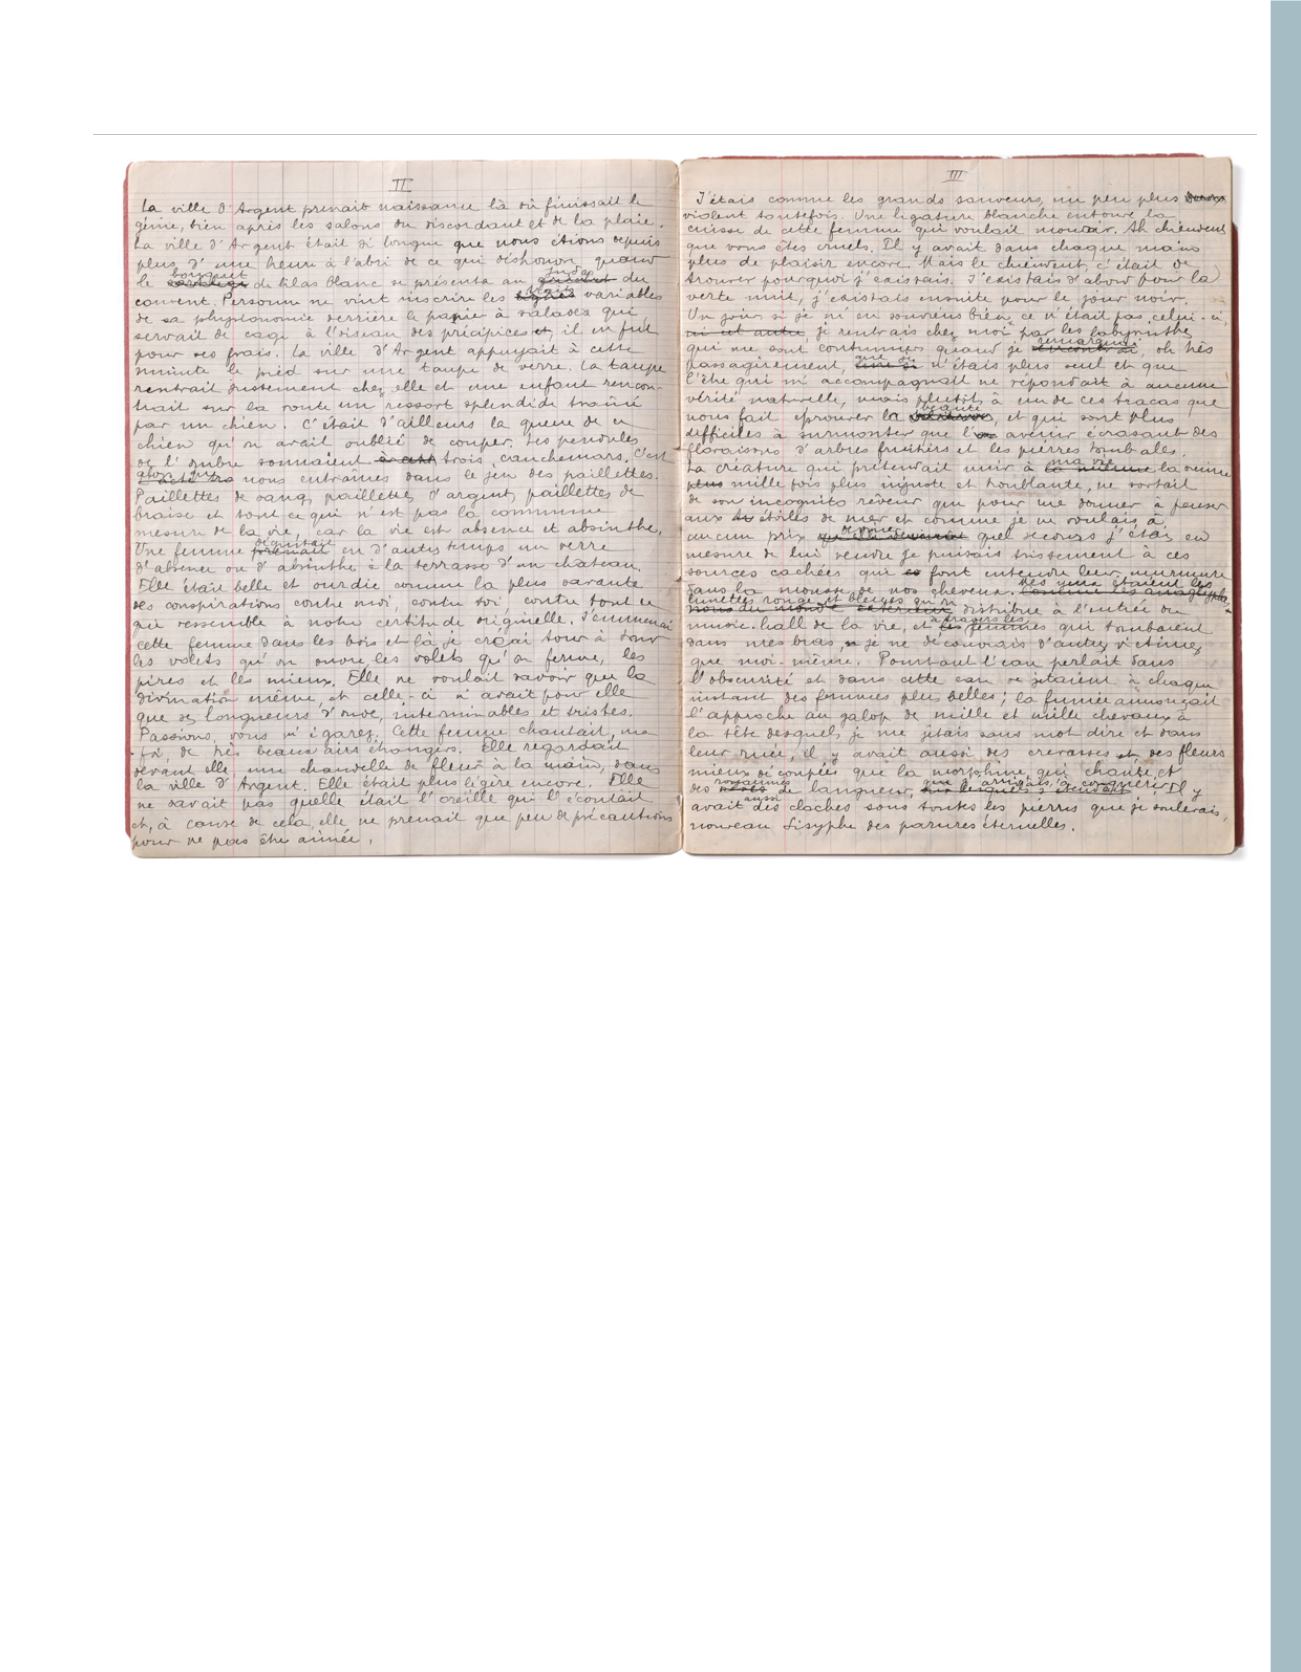 II
La ville d'Argent prenait naissance là où finissait le
génie, bien après les salons du discordant et de la plaie.
La ville d'Argent était si longue que nous étions depuis
plus d'une heure à l'abri de ce qui déshonore quand
bouquet
le de lilas blanc se présenta au du
couvent. Personne ne vint inscrire les variables
de sa physionomie derrière le panier à salades qui
servait de cage à l'oiseau des précipices et, il en fut
pour ses frais. La ville d'Argent appuyait à cette
minute le pied sur une taupe de verre. La taupe
rentrait justement chez elle et une enfant rencon-
trait sur la route un ressort splendide traîné
par un chien. C'était d'ailleurs la queue de ce
chien qu'on avait oublié de couper. Les pendules
de l'ombre sonnaient trois cauchemars. C'est
nous entraînes dans le jeu des paillettes.
Paillettes de sang, paillettes d'argent, paillettes de
braise et tout ce qui n'est pas la commune
mesure de la vie, car la vie est absence et absinthe.
dégustait
Une femme prenait en d'autres temps un verre
d'absence ou d'absinthe à la terrasse d'un château.
Elle était belle et ourdie comme la plus savante
des conspirations contre moi, contre toi, contre tout ce
qui ressemble à notre certitude originelle. J'emmenai
cette femme dans les bois et là je créai tour à tour
les volets qu'on ouvre, les volets qu'on ferme, les
pires et les mieux. Elle ne voulait savoir que la
divination même, et celle-ci n'avait pour elle
que des longueurs d'onde, interminables et tristes.
Passions, vous m'égarez. Cette femme chantait, ma
foi, de très beaux airs étrangers. Elle regardait
devant elle, une chandelle de fleurs à la main, dans
la ville d'Argent. Elle était plus légère encore. Elle
ne savait pas quelle était l'oreille qui l'écoutait
et, à cause de cela, elle ne prenait que peu de précautions
pour ne pas être aimée.
III
J'étais comme les grands sauveurs, un peu plus
violent toutefois. Une ligature blanche entoure la
cuisse de cette femme qui voulait mourir. Ah chiendent
que vous êtes cruels. Il y avait dans chaque main
plus de plaisir encore. Mais le chiendent, c'était de
trouver pourquoi j'existais. J'existais d'abord pour la
verte nuit, j'existais ensuite pour le jour noir.
Un jour, si je m'en souviens bien, ce n'était pas celui-ci,
ni cet autre, je rentrais chez moi par les labyrinthes
remarquai
qui me sont coutumiers quand je, oh très
que je
passagèrement, n'étais plus seul et que
l'être qui m'accompagnait ne répondait à aucune
vérité naturelle, mais plutôt à un de ces tracas que
beauté
nous fait éprouver la, et qui sont plus
difficiles à surmonter que l'avenir écrasant des
floraisons d'arbres fruitiers et les pierres tombales.
ma vie
La créature qui prétendait unir à la même la sienne
plus mille fois plus injuste et troublante, ne sortait
de son incognito rêveur que pour me donner à penser
aux étoiles de mer et comme je ne voulais à
deviner
aucun prix quel secours j'étais en
mesure de lui vendre je puisais tristement à ces
sources cachées qui font entendre leur murmure
Mes yeux étaient les
dans la mousse de nos cheveux. Comme les anaglyphes
lunettes rouges et bleues qu'on
nous du monde extérieur distribue à l'entrée du
à travers les
music-hall de la vie, et les femmes qui tombaient
dans mes bras, je ne découvrais d'autres victimes
que moi-même. Pourtant l'eau perlait dans
l'obscurité et dans cette eau se jetaient à chaque
instant des femmes plus belles ; la fumée annonçait
l'approche au galop de mille et mille chevaux à
la tête desquels je me jetais sans mot dire et dans
leur ruée, il y avait aussi des crevasses et des fleurs
mieux découpées que la morphine qui chante et
royaumes
des de langueur, Il y
aussi
avait des cloches sous toutes les pierres que je soulevais,
nouveau Sisyphe des parures éternelles.